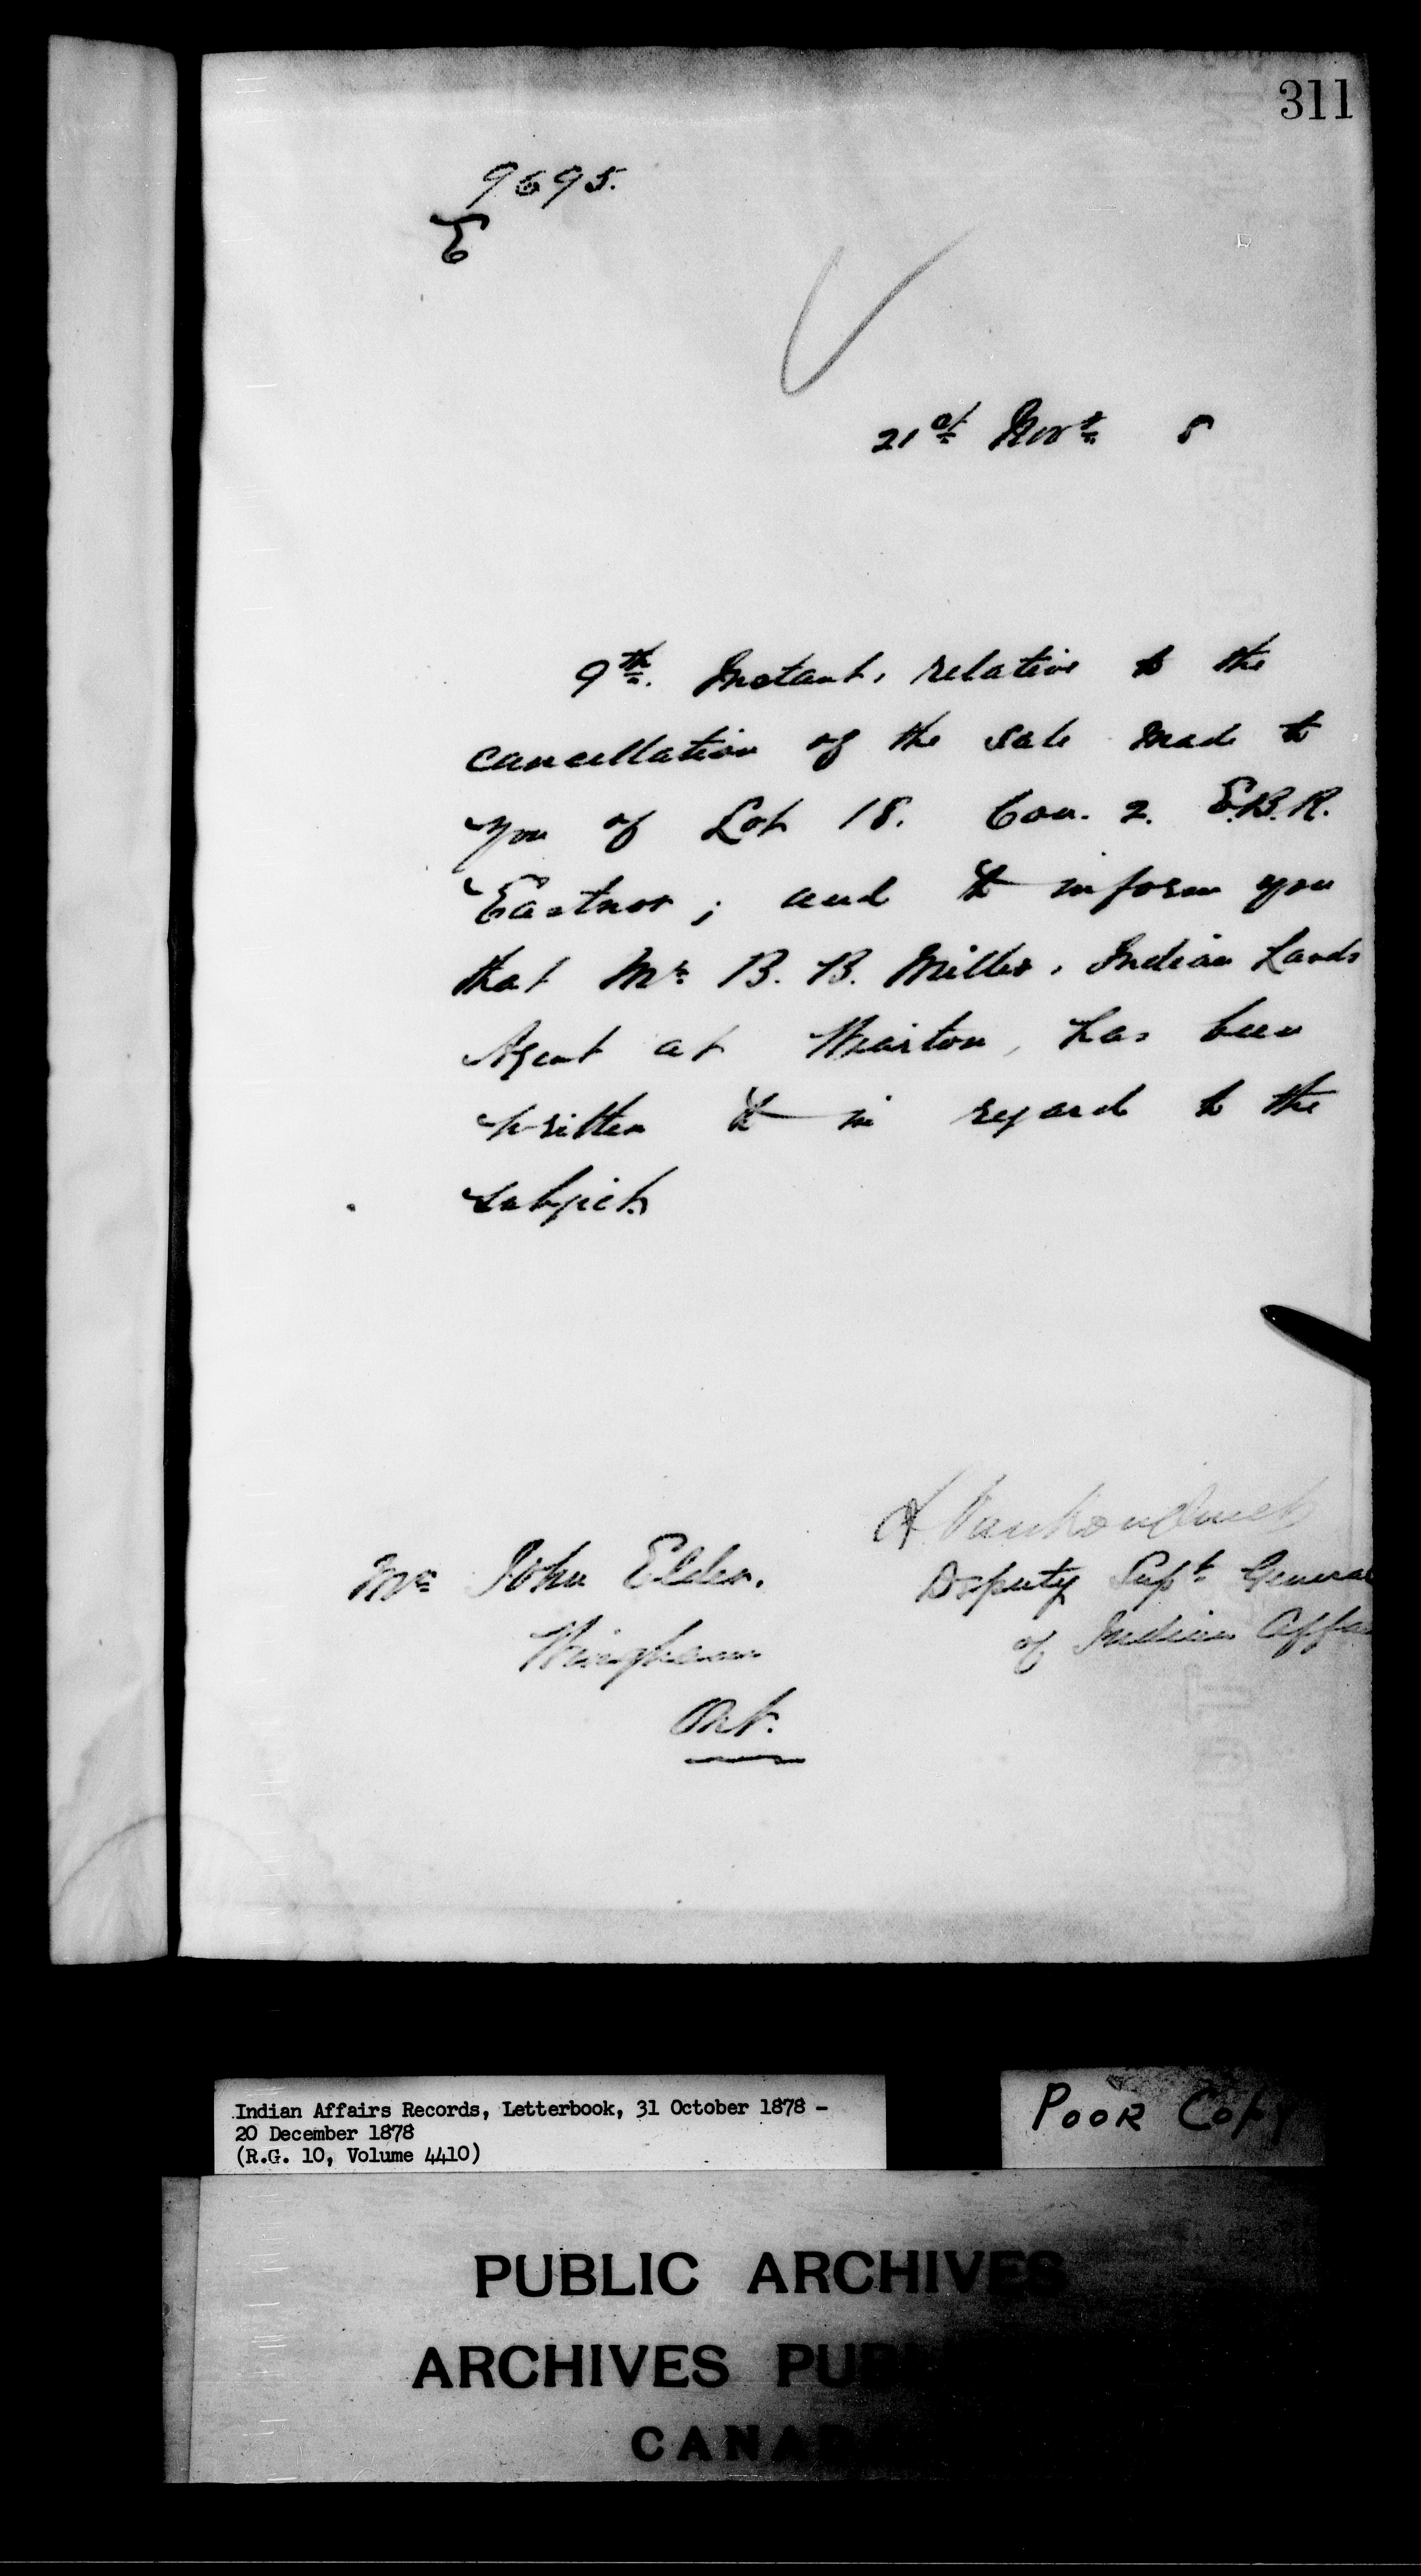 311
9695.
E
21st Novr. 8
9th. Instant, relative to the
cancellation of the sale made to
you of Lot 18. Con. 2. E.B.R.
Eastnor; and to inform you
that Mr. B. B. Miller, Indian Lands
Agent at Wiarton, has been
written to in regard to the
subject.
L Vankoughnet
Mr. John Elder.
Deputy Supt. General
of Indian Affa
Wingham
Ont.
Indian Affairs Records, Letterbook, 31 October 1878 -
20 December 1878
(R.G. 10, Volume 4410)
POOR COPY
PUBLIC ARCHIVES
ARCHIVES PUB
CANADA